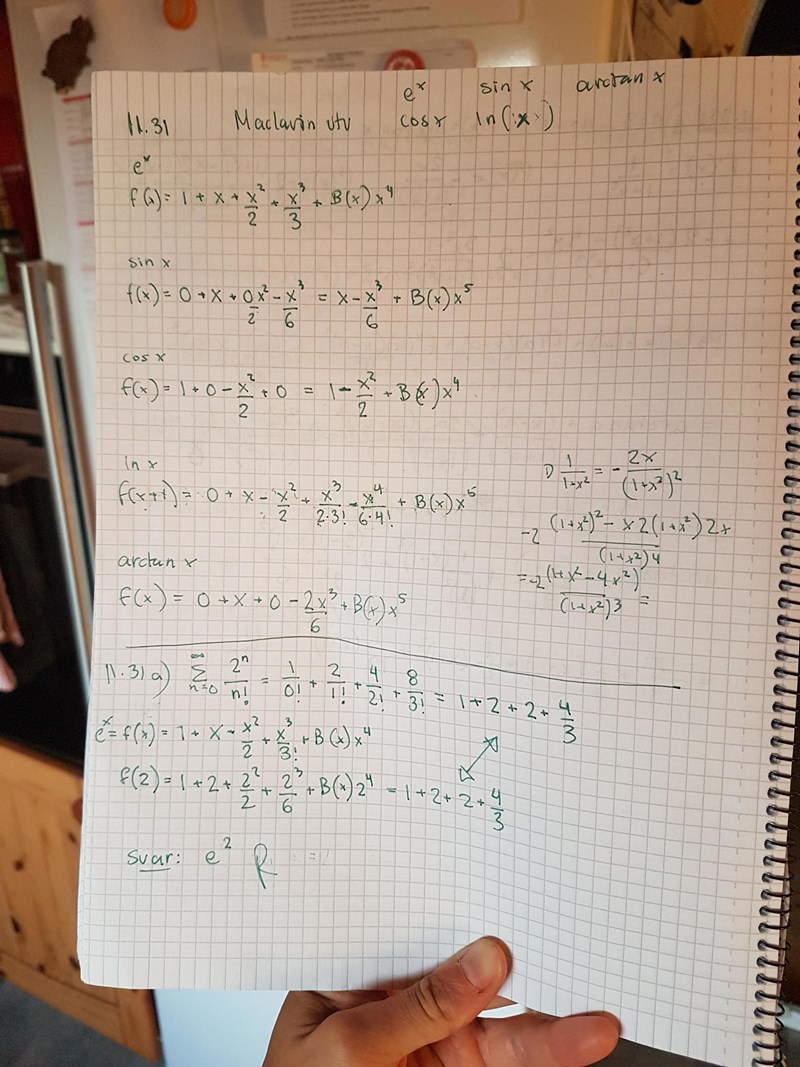 e^x sin x arctan x
11.31 Maclavin utv cos x ln(x)
e^x
f(x) = 1 + x + x^2/2 + x^3/3 + B(x) x^4
sin x
f(x) = 0 + x + 0x^2/2 - x^3/6 = x - x^3/6 + B(x) x^5
cos x
f(x) = 1 + 0 - x^2/2 + 0 = 1 - x^2/2 + B(x) x^4
ln x
f(x+1) = 0 + x - x^2/2 + x^3/(2·3!) - x^4/(6·4!) + B(x) x^5
arctan x
f(x) = 0 + x + 0 - 2x^3/6 + B(x) x^5
D 1/(1+x^2) = - 2x/(1+x^2)^2
-2 ((1+x^2)^2 - x2(1+x^2)2x)/(1+x^2)^4
= -2 (1+x^2 - 4x^2)/(1+x^2)^3 =
11.31 a) ∑_{n=0}^{∞} 2^n/n! = 1/0! + 2/1! + 4/2! + 8/3! = 1 + 2 + 2 + 4/3
e^x = f(x) = 1 + x + x^2/2 + x^3/3! + B(x) x^4
f(2) = 1 + 2 + 2^2/2 + 2^3/6 + B(x) 2^4 = 1 + 2 + 2 + 4/3
svar: e^2 R